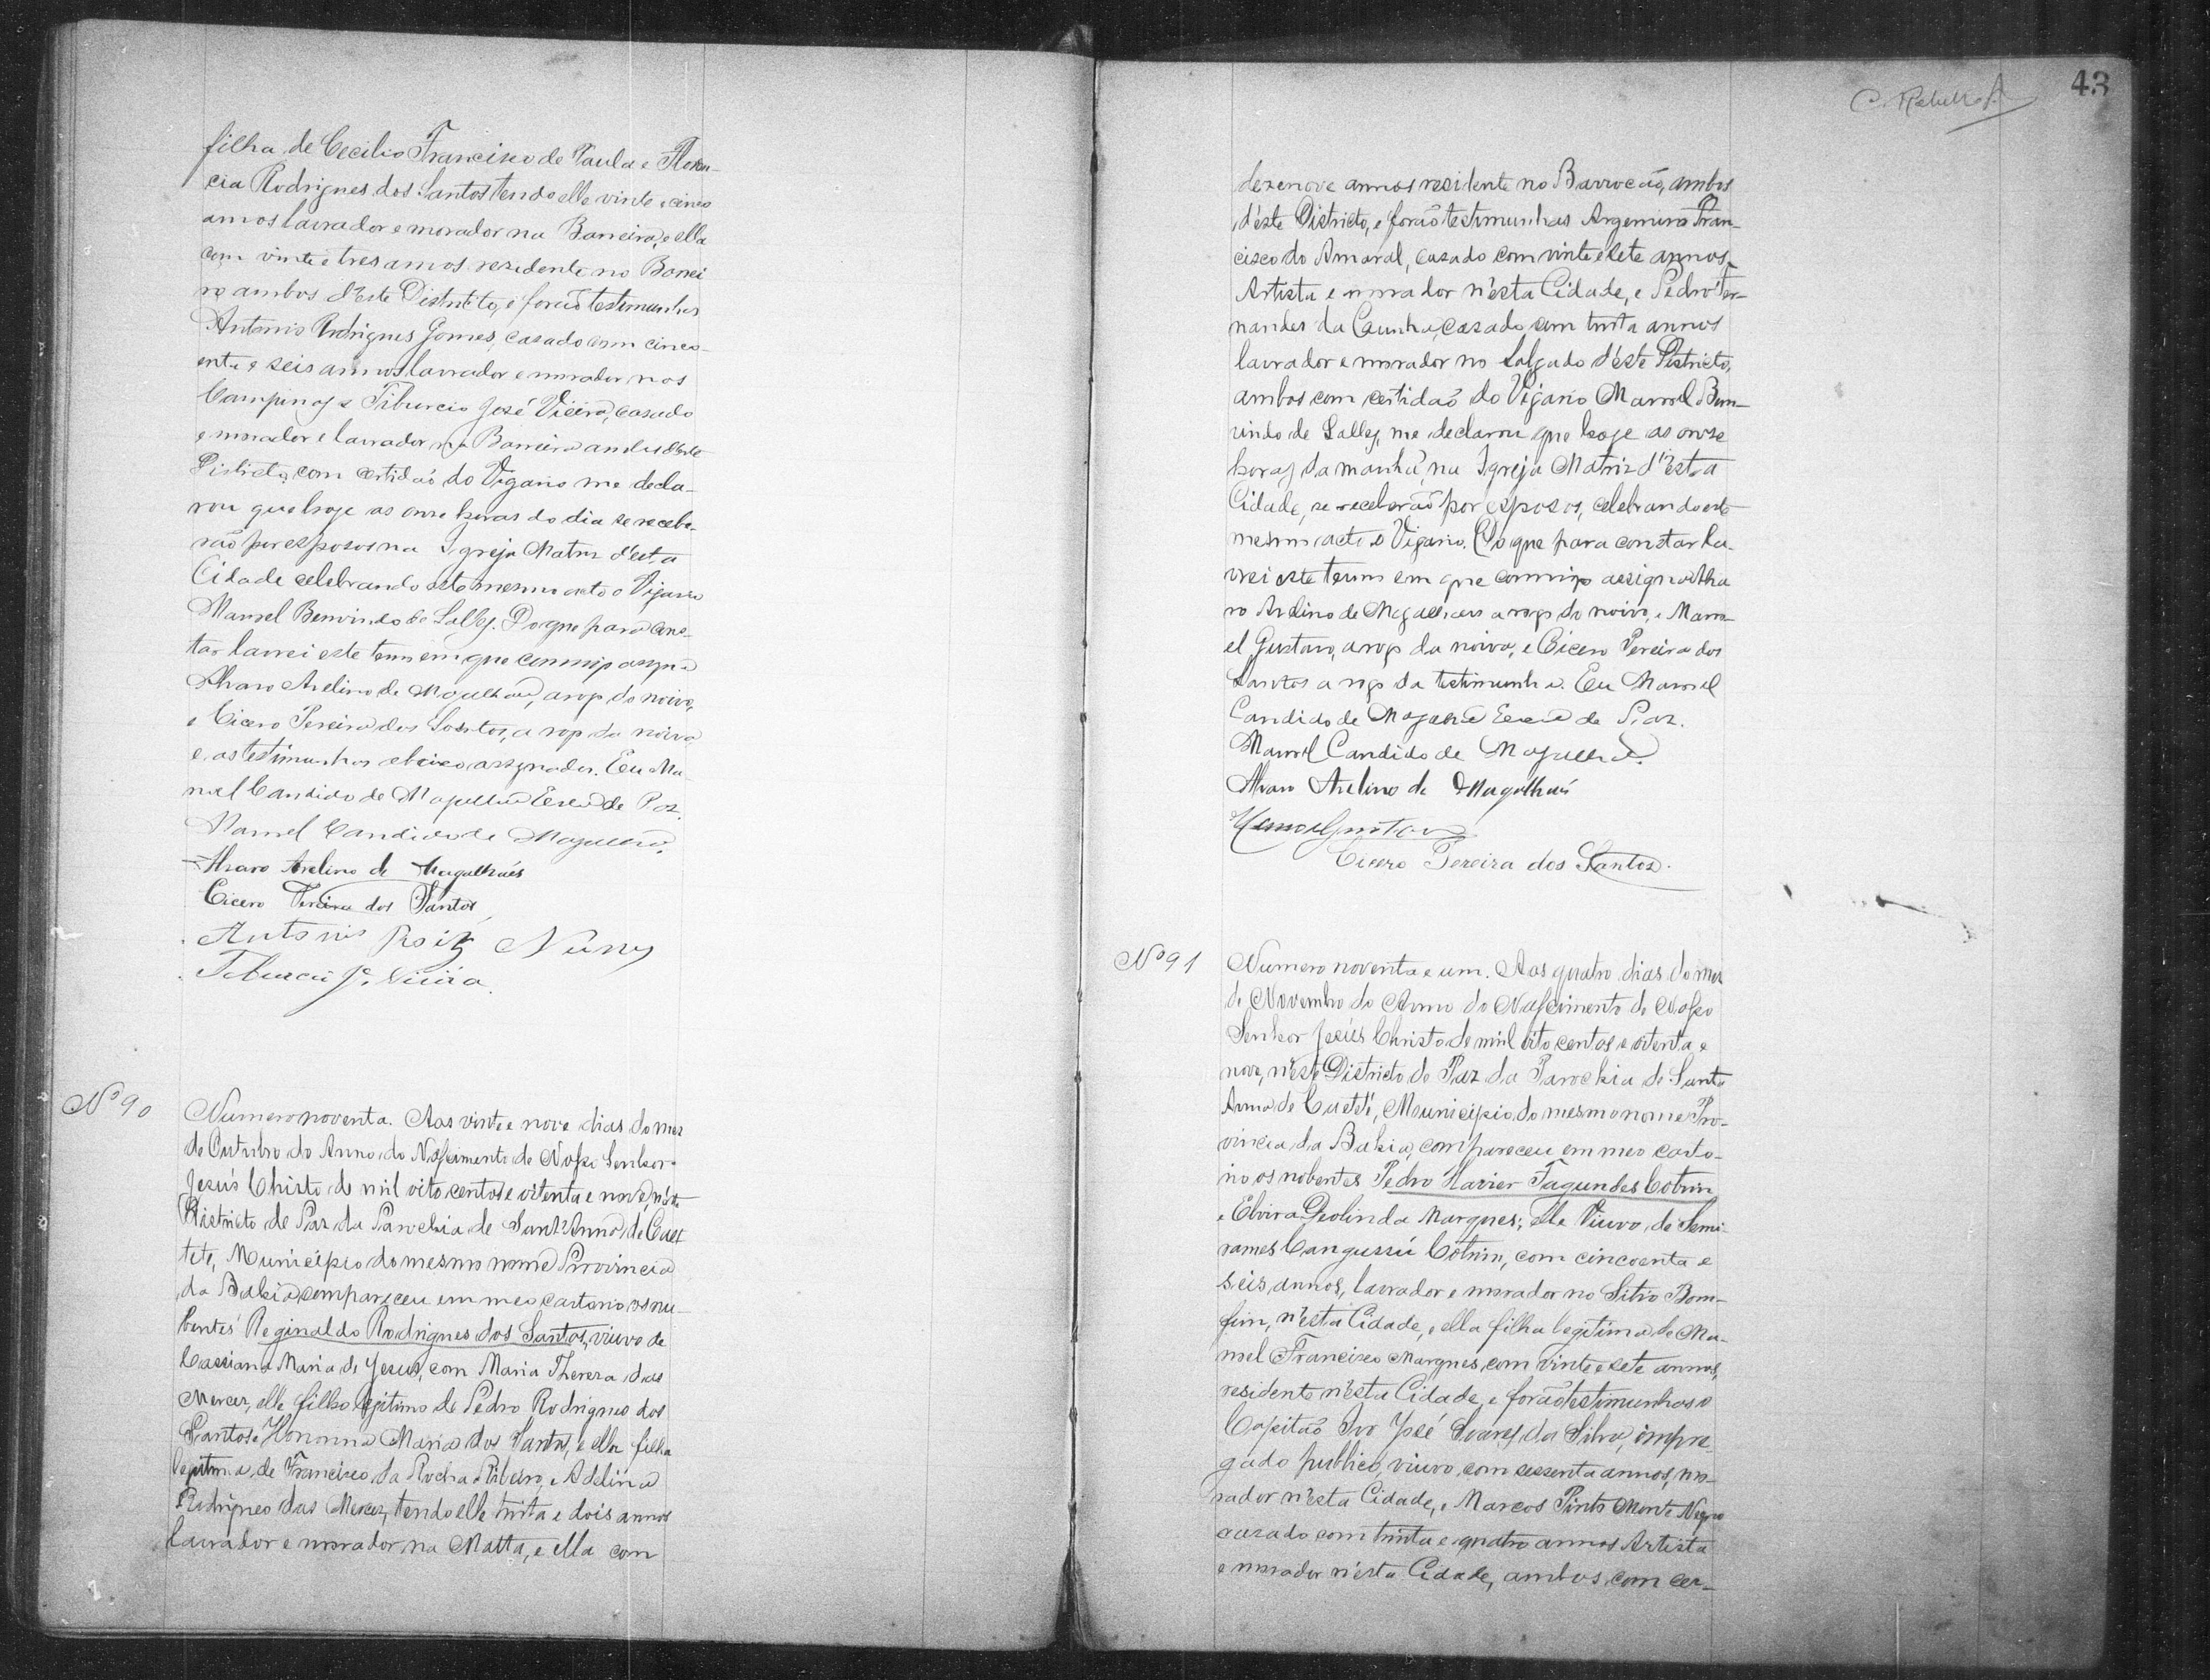 filha de Cecilio Francisco de Paula e Floren-
cia Rodrigues dos Santos tendo elle vinte e cinco
annos lavrador e morador na Barreira, e ella
com vinte e tres annos residente no Barrei
ro ambos d'este Districto, e forão testemunhas
Antonio Rodrigues Gomes, casado com cinco-
enta e seis annos lavrador e morador nos
Campinas e Tiburcio José Vieira, casado
e morador e lavrador na Barreira ambos d'este
Districto, com certidaõ do Vigario me decla-
rou que hoje as onze horas do dia se recebe-
raõ por esposos na Igreja Matriz d'esta
Cidade celebrando este mesmo acto o Vigario
Manoel Benvindo de Salles. Do que para cons-
tar lavrei este termo em que commigo assigna
Alvaro Avelino de Magalhães, a rogo do noivo,
e Cicero Pereira dos Santos, a rogo da noiva
e as testimunhas abaixo assignados. Eu Ma-
noel Candido de Magalhães Escrm de Paz.
Manoel Candido de Magalhães.
Alvaro Avelino de Magalhães
Cicero Pereira dos Santos
Antonio Roiz Nunes
Tiburcio Je. Vieira.
Nº 90
Numero noventa. Aos vinte e nove dias do mez
de Outubro do Anno do Nascimento de Nosso Senhor
Jesús Christo de mil oito centos e oitenta e nove, n'este
Districto de Paz da Parochia de Sant'Anna de Caet
teté, Municipio do mesmo nome Provincia
da Bahia compareceu em meo cartorio os nu-
bentes Reginaldo Rodrigues dos Santos, viuvo de
Cassiana Maria de Jesus, com Maria Thereza das
Merces, elle filho legitimo de Pedro Rodrigues dos
Santos e Honoria Maria dos Santos, e ella filha
legitima de Francisco da Rocha Ribeiro, e Adelina
Rodrigues das Merces, tendo elle trinta e dois annos
lavrador e morador na Matta, e ella com
43
dezenove annos residente no Barrocaõ, ambos
d'éste Districto, e foraõ testimunhas Argemiro Fran-
cisco do Amaral, casado com vinte e sete annos
Artista e morador n'ésta Cidade, e Pedro Fer-
nandes da Cunha, casado, com trinta annos
lavrador e morador no Salgado d'éste Districto,
ambos com certidaõ do Vigario Manoel Ben-
vindo de Salles, me declarou que hoje as onze
horas da manhã, na Igreja Matriz d'ésta
Cidade, se receberaõ por esposos, celebrando este
mesmo acto o Vigario. Do que para constar la-
vrei este termo em que commigo assigna Alva
ro Avelino de Magalhaes a rogo do noivo, e Mano-
el Gustavo, a rogo da noiva, e Cicero Pereira dos
Santos a rogo da testimunha. Eu Manoel
Candido de Magalhães Escrm de Paz.
Manoel Candido de Magalhães
Alvaro Avelino de Magalhães
Manoel Gustavo
Cicero Pereira dos Santos.
Nº 91
Numero noventa e um. Aos quatro dias do mez
de Novembro do Anno do Nascimento de Nosso
Senhor Jesús Christo de mil oito centos e oitenta e
nove, n'éste Districto de Paz da Parochia de Santa
Anna de Caeteté, Municipio do mesmo nome Pro-
vincia da Bahia, compareceu em meo carto-
rio os nobentes Pedro Xavier Fagundes Cotrim
e Elvira Deolinda Marques; elle Viuvo, de Semi-
rames Cangussú Cotrim, com cincoenta e
seis annos, lavrador e morador no Sitio Bom-
fim, n'ésta Cidade, e ella filha legitima de Ma-
noel Francisco Marques, com vinte e sete annos,
residente n'ésta Cidade, e foraõ testimunhas o
Capitaõ Ivo José Soares da Silva, impre-
gado publico, viuvo, com sessenta annos, mo-
rador n'ésta Cidade, e Marcos Pinto Monte Negro
casado com trinta e quatro annos Artista
e morador n'ésta Cidade, ambos com cer-